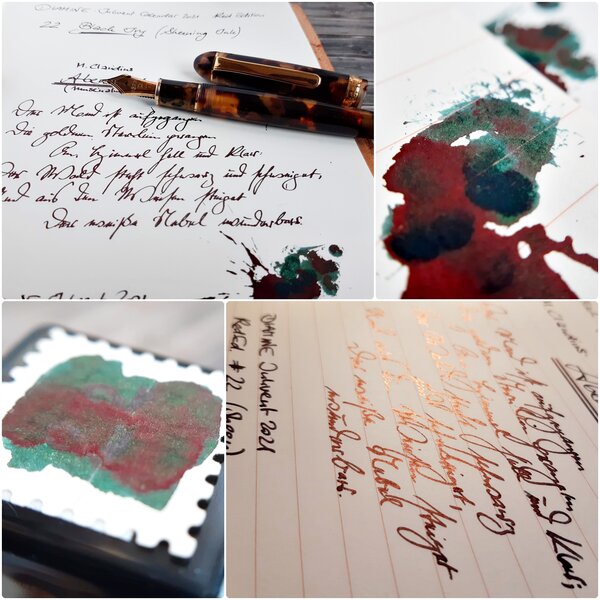 DIAMINE Inkvent Calendar 2021 - Red Edition
22 Black Ivy (Sheening Ink)
M. Claudius
Der Mond ist aufgegangen
Die goldnen Sternlein prangen
Am Himmel hell und klar.
Der Wald steht schwarz und schweiget,
Und aus den Wiesen steiget
Der weiße Nebel wunderbar.
2021
DIAMINE Inkvent 2021
RedEd # 22 (Sheen.)
M. Claudius
Der Mond ist aufgegangen
Am Himmel hell und klar;
Der Wald steht schwarz
und schweiget,
Und aus den Wiesen steiget
Der weiße Nebel
wunderbar.